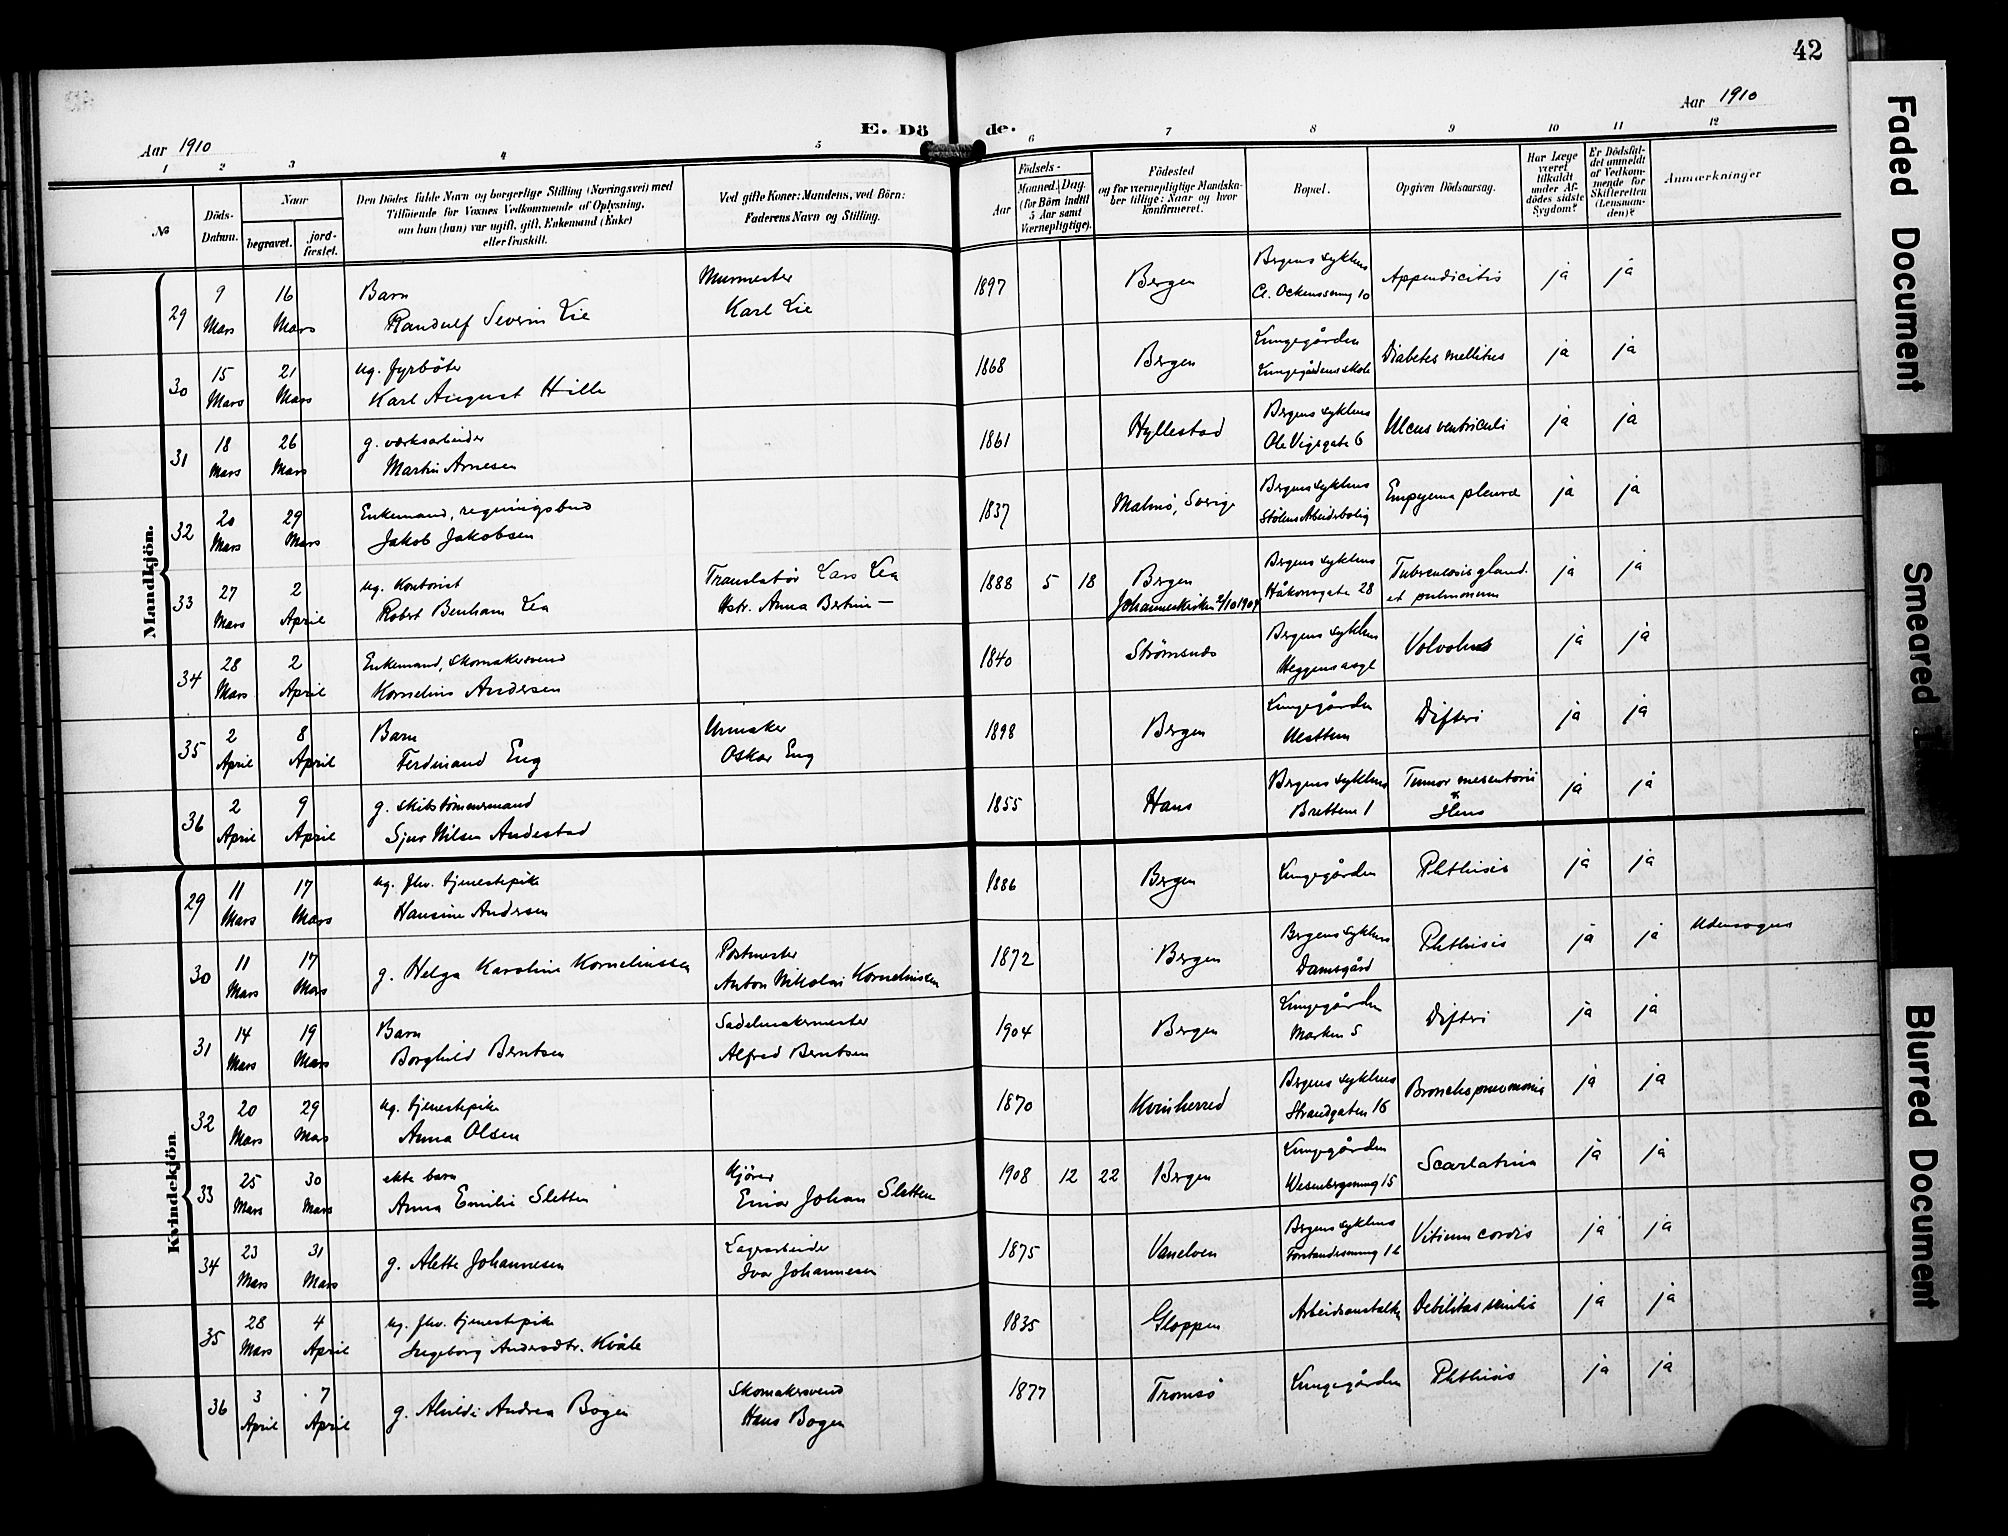 42
Aar 1910
Aar 1910
E. Dö de.
1 2 3 4 5 6 7 8 9 10 11 12
№
Döds-
Datum.
Naar
begravet.
jord-
fæstet.
Den Dödes fulde Navn og borgerlige Stilling (Næringsvei) med
Tilföiende for Voxnes Vedkommende af Oplysning,
om han (hun) var ugift, gift, Enkemand (Enke)
eller fraskilt.
Ved gifte Koner: Mandens, ved Börn:
Faderens Navn og Stilling.
Födsels-
Aar
Maaned. Dag.
(for Börn indtil
5 Aar samt
Værnepligtige).
Födested
og for værnepligtige Mandska-
ber tillige: Naar og hvor
konfirmeret.
Bopæl.
Opgiven Dödsaarsag.
Har Læge
været
tilkaldt
under Af-
dödes sidste
Sygdom?
Er Dödsfal-
det anmeldt
af Vedkom-
mende for
Skifteretten
(Lensman-
den)?
Anmærkninger
Mandkjön.
9 16 Barn Murmester Bergens sykehus
29 Mars Mars Randulf Severin Lie Karl Lie 1897 Bergen Cl. Ockenssmug 10 Appendicitis ja ja
15 21 ug. fyrbøter Lungegården
30 Mars Mars Karl August Hille 1868 Bergen Lungegårdens skole Diabetes mellitus ja ja
18 26 g. verksarbeider Bergens sykehus
31 Mars Mars Martin Arnesen 1861 Hyllestad Ole Vigsgate 6 Ulcus ventriculi ja ja
20 29 Enkemand, regningsbud Bergens sykehus
32 Mars Mars Jakob Jakobsen 1837 Malmö, Sverige Stølens Arbeiderbolig Empyema pleuræ ja ja
27 2 ug. Kontorist Translatør Lars Lea Bergen Bergens sykehus Tuberculosis gland.
33 Mars April Robert Benham Lea Hstr. Anna Bertine — 1888 5 18 Johanneskirken 2/10 1904 Håkonsgate 28 et pulmonum ja ja
28 2 Enkemand, skomakersvend Bergens sykehus
34 Mars April Kornelius Andersen 1840 Strømsnes Heggensasyl Volvolus ja ja
2 8 Barn Urmaker Lungegården
35 April April Ferdinand Eng Oskar Eng 1898 Bergen Nesttun Difteri ja ja
2 9 g. skibstømmermand Bergens sykehus Tumor mesenterii
36 April April Sjur Nilsen Andestad 1855 Hans Brettem 1 Ileus ja ja
Kvindekjön
11 17 ug. fhv. tjenestepike
29 Mars Mars Hansine Andersen 1886 Bergen Lungegården Phthisis ja ja
11 17 Postmester Bergens sykehus
30 Mars Mars g. Helga Karoline Korneliussen Anton Nikolai Korneliussen 1872 Bergen Damsgård Phthisis ja ja Udensogns
14 19 Barn Sadelmakermester Lungegården
31 Mars Mars Borghild Berntsen Alfred Berntsen 1904 Bergen Marken 5 Difteri ja ja
20 29 ug. tjenestepike Bergens sykehus
32 Mars Mars Anna Olsen 1870 Kvinherred Strandgaten 16 Bronchopneumonia ja ja
25 30 ekte barn Kjører Lungegården
33 Mars Mars Anna Emilie Sletten Einar Johan Sletten 1908 12 22 Bergen Wesenbergsmug 15 Scarlatina ja ja
23 31 Lagerarbeider Bergens sykehus
34 Mars Mars g. Alette Johannesen Ivar Johannesen 1875 Vanelven Forstandersmug 1 Vitium cordis ja ja
28 4 ug. fhv. tjenestepike
35 Mars April Ingeborg Andersdtr. Kvåle 1835 Gloppen Arbeidsanstalten Debilitas senilis ja ja
3 7 Skomakersvend
36 April April g. Alvilde Andrea Bogen Hans Bogen 1877 Tromsö Lungegården Phthisis ja ja
Faded Document
Smeared
Blurred Document